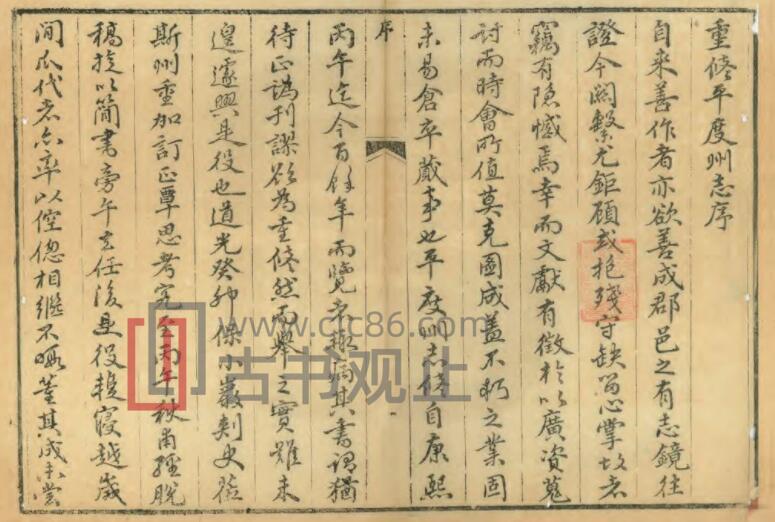 重修平度州志序
自來善作者亦欲善成郡邑之有志鏡往
證今關繫尤鉅顧或抱殘守缺留心掌故者
竊有隱憾焉幸而文獻有徵於以廣資蒐
討而時會所值莫克圖成蓋不朽之業固
未易倉卒蕆事也平度州志修自康熙
序
丙午迄今百餘年而覽者輒病其書謂猶
待正譌刊謬欲為重修然而舉之實難未
遑遽興是役也道光癸卯 保小巖刺史蒞
斯州重加訂正覃思考究至丙午秋甫經脫
稿旋以簡書旁午去任後是役輟寢越歲
間瓜代者亦率以倥傯相繼不暇董其成未嘗
www.cjc86.com
古书观止